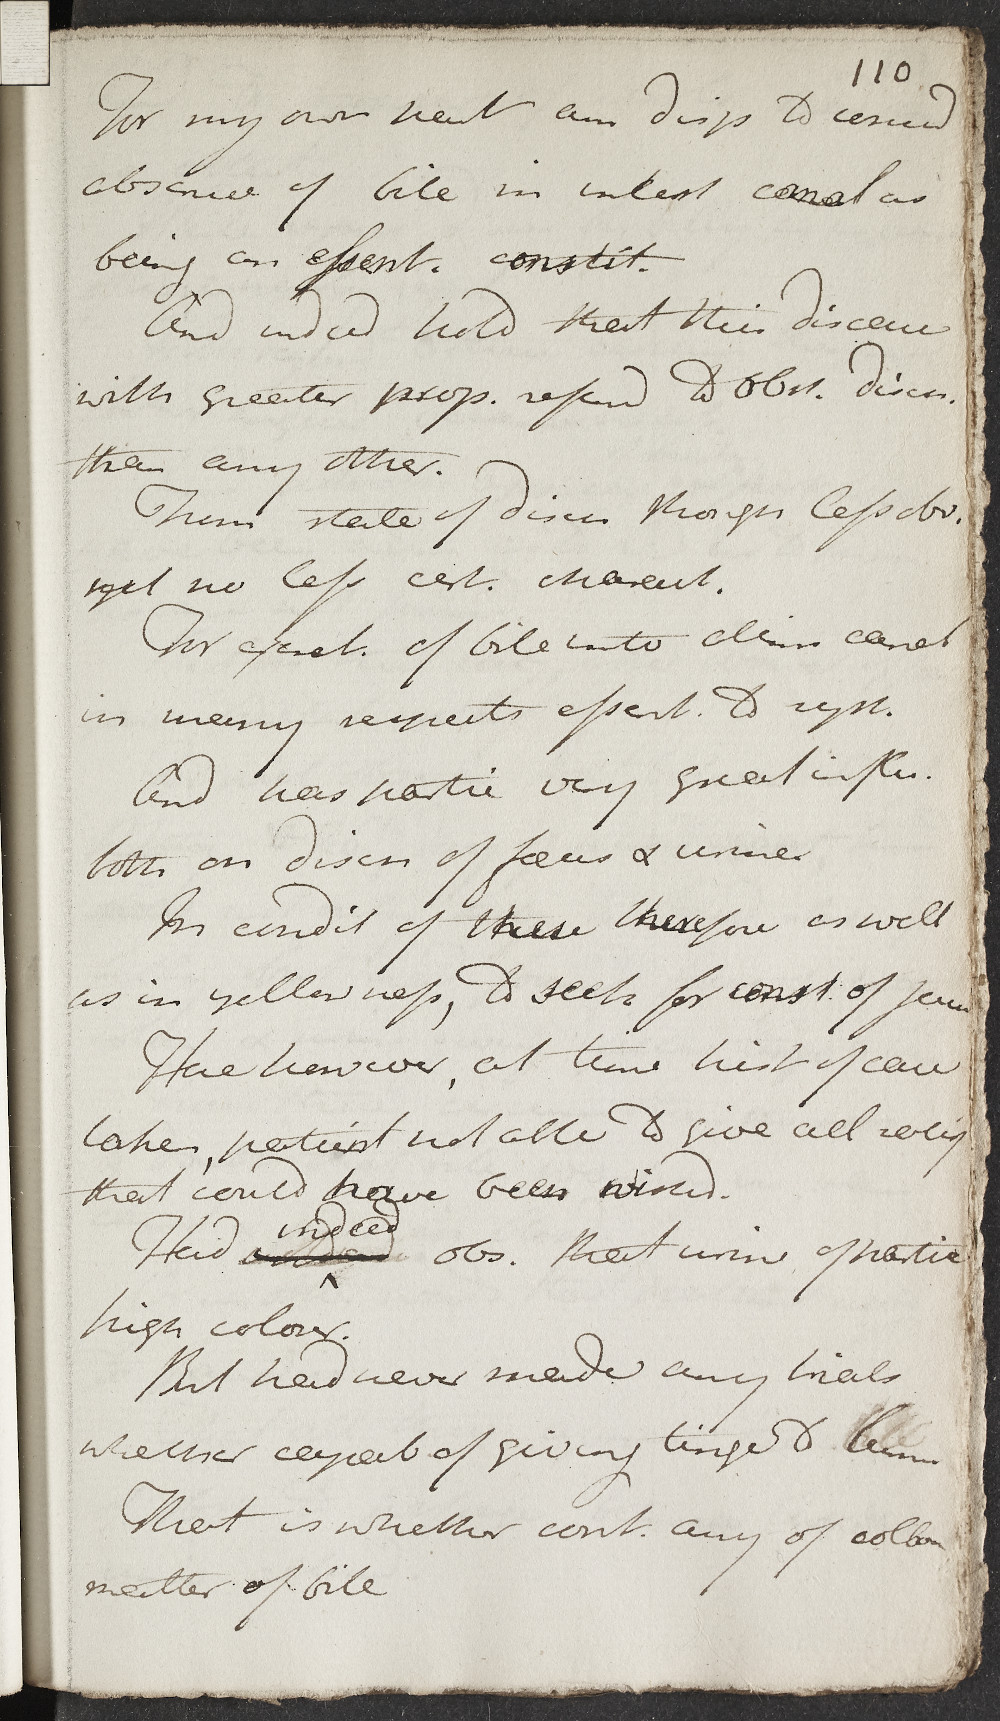 110
For my own part am disp to consid
absence of bile in intest canal as
being an essent. constit.
And indeed hold that this disease
with greater prop. referred to obst. discn.
than any other.
Then state of discn though less obv.
yet no less cert. charact.
For of bile into alim canal
in many respects essent. to syst.
And has partic very great influ.
both on discn of faeces & urine
In condit of these therefore as well
as in yellowness, to seek for const. of jaun
Here however, at time hist of case
taken, patient not able to give all
that could have been wished.
Had indeed obs. that urine of partic
high colour.
But had never made any trials
whether capab of giving tinge to linnn
That is whether cont. any of collou
matter of bile